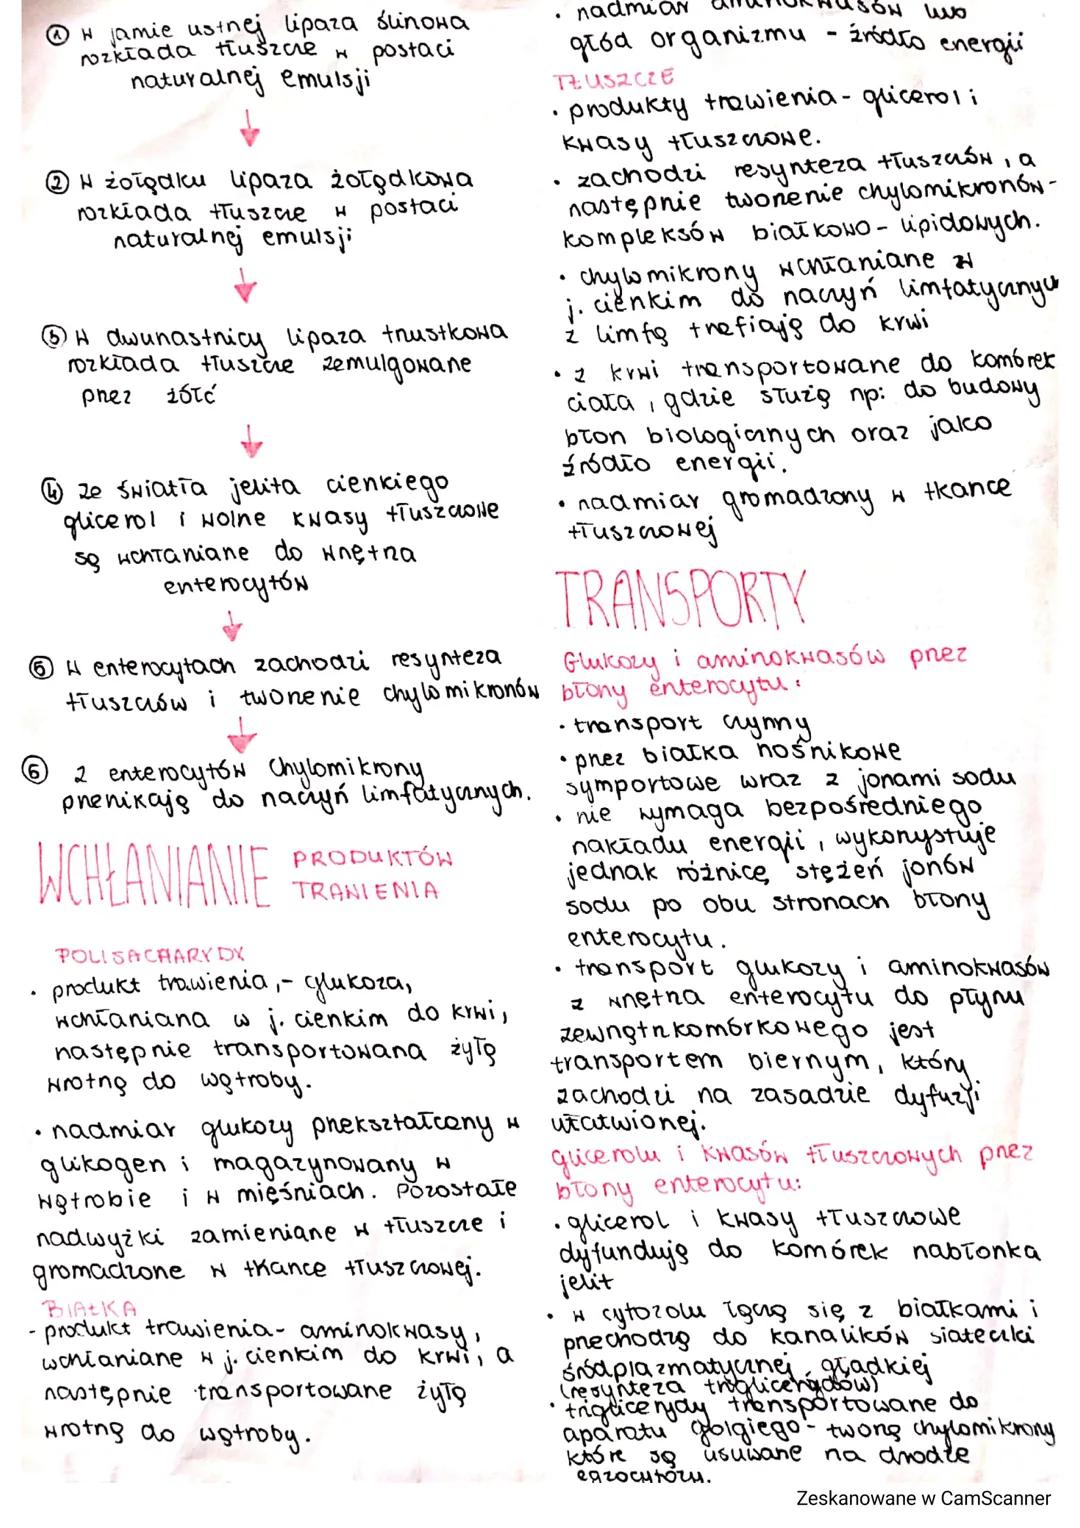 ① W jamie ustnej lipaza ślinowa
rozkłada tłuszcze w postaci
naturalnej emulsji
② W żołądku lipaza żołądkowa
rozkłada tłuszcze w postaci
naturalnej emulsji
③ W dwunastnicy lipaza trzustkowa
rozkłada tłuszcze zemulgowane
przez żółć
④ Ze światła jelita cienkiego
glicerol i wolne kwasy tłuszczowe
są wchłaniane do wnętrza
enterocytów
⑤ W enterocytach zachodzi resynteza
tłuszczów i tworzenie chylomikronów
⑥ Z enterocytów Chylomikrony
przenikają do naczyń limfatycznych.
WCHŁANIANIE PRODUKTÓW
TRAWIENIA
POLISACHARYDY
• produkt trawienia,- glukoza,
wchłaniana w j. cienkim do krwi,
następnie transportowana żyłą
wrotną do wątroby.
• nadmiar glukozy przekształcany w
glikogen i magazynowany w
wątrobie i w mięśniach. Pozostałe
nadwyżki zamieniane w tłuszcze i
gromadzone w tkance tłuszczowej.
BIAŁKA
- produkt trawienia- aminokwasy,
wchłaniane w j. cienkim do krwi, a
następnie transportowane żyłą
wrotną do wątroby.
• nadmiar aminokwasów
głód organizmu - źródło energii
TŁUSZCZE
• produkty trawienia- glicerol i
kwasy tłuszczowe.
• zachodzi resynteza tłuszczów, a
następnie tworzenie chylomikronów-
kompleksów białkowo-lipidowych.
• chylomikrony wchłaniane w
j. cienkim do naczyń limfatycznych
z limfą trafiają do krwi
• z krwi transportowane do komórek
ciała, gdzie służą np: do budowy
błon biologicznych oraz jako
źródło energii.
• nadmiar gromadzony w tkance
tłuszczowej
TRANSPORTY
Glukozy i aminokwasów przez
błony enterocytu:
• transport czynny
• przez białka nośnikowe
symportowe wraz z jonami sodu
• nie wymaga bezpośredniego
nakładu energii, wykorzystuje
jednak różnicę stężeń jonów
sodu po obu stronach błony
enterocytu.
• transport glukozy i aminokwasów
z wnętrza enterocytu do płynu
zewnątrzkomórkowego jest
transportem biernym, który
zachodzi na zasadzie dyfuzji
ułatwionej.
glicerolu i kwasów tłuszczowych przez
błony enterocytu:
• glicerol i kwasy tłuszczowe
dyfundują do komórek nabłonka
jelit
• w cytozolu łączą się z białkami i
przechodzą do kanalików siateczki
śródplazmatycznej gładkiej
(resynteza triglicerydów)
• triglicerydy transportowane do
aparatu Golgiego - tworzą chylomikrony
które są usuwane na drodze
egzocytozy.
Zeskanowane w CamScanner